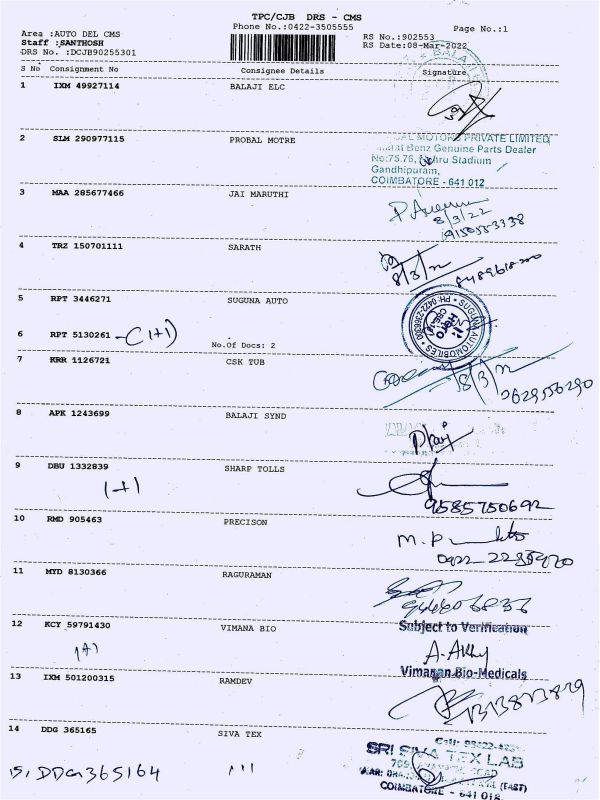 TPC/CJB DRS - CMS
Phone No.:0422-3505555
Page No.:1
Area :AUTO DEL CMS
RS No.:902553
Staff :SANTHOSH
RS Date:08-Mar-2022
DRS No. :DCJB90255301
S No Consignment No Consignee Details Signature
1 IXM 49927114 BALAJI ELC
2 SLM 290977115 PROBAL MOTRE
MOTORS PRIVATE LIMITED
Benz Genuine Parts Dealer
No:75.76, Nehru Stadium
Gandhipuram,
COIMBATORE - 641 012
3 MAA 285677466 JAI MARUTHI
8/3/22
4 TRZ 150701111 SARATH
8/3/22
5 RPT 3446271 SUGUNA AUTO
SUGUNA AUTOMOBILES
6 RPT 5130261 (1+1)
No.Of Docs: 2
7 KRR 1126721 CSK TUB
8/3/22
8 APK 1243699 BALAJI SYND
9 DBU 1332839 SHARP TOLLS
(1+1)
9585750692
10 RMD 905463 PRECISON
11 MYD 8130366 RAGURAMAN
12 KCY 59791430 VIMANA BIO
Subject to Verification
Vimasan Bio-Medicals
13 IXM 501200315 RAMDEV
14 DDG 365165 SIVA TEX
SRI SIVA TEX LAB
(EAST)
COIMBATORE - 641 018
15, DDG 365164 "1